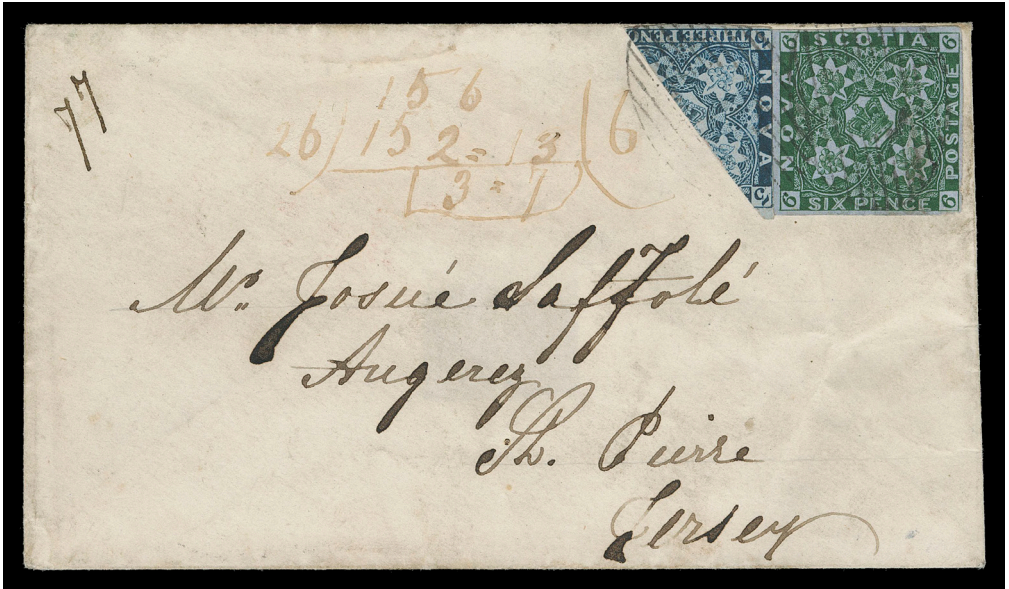 77
15 6
26) 15 2 = 13 ( 6
3 = 1
THREE PENC
NOVA
SCOTIA
NOVA
POSTAGE
SIX PENCE
6 6 6 6
Mr. Josué
Augerez
St. Pierre
Jersey